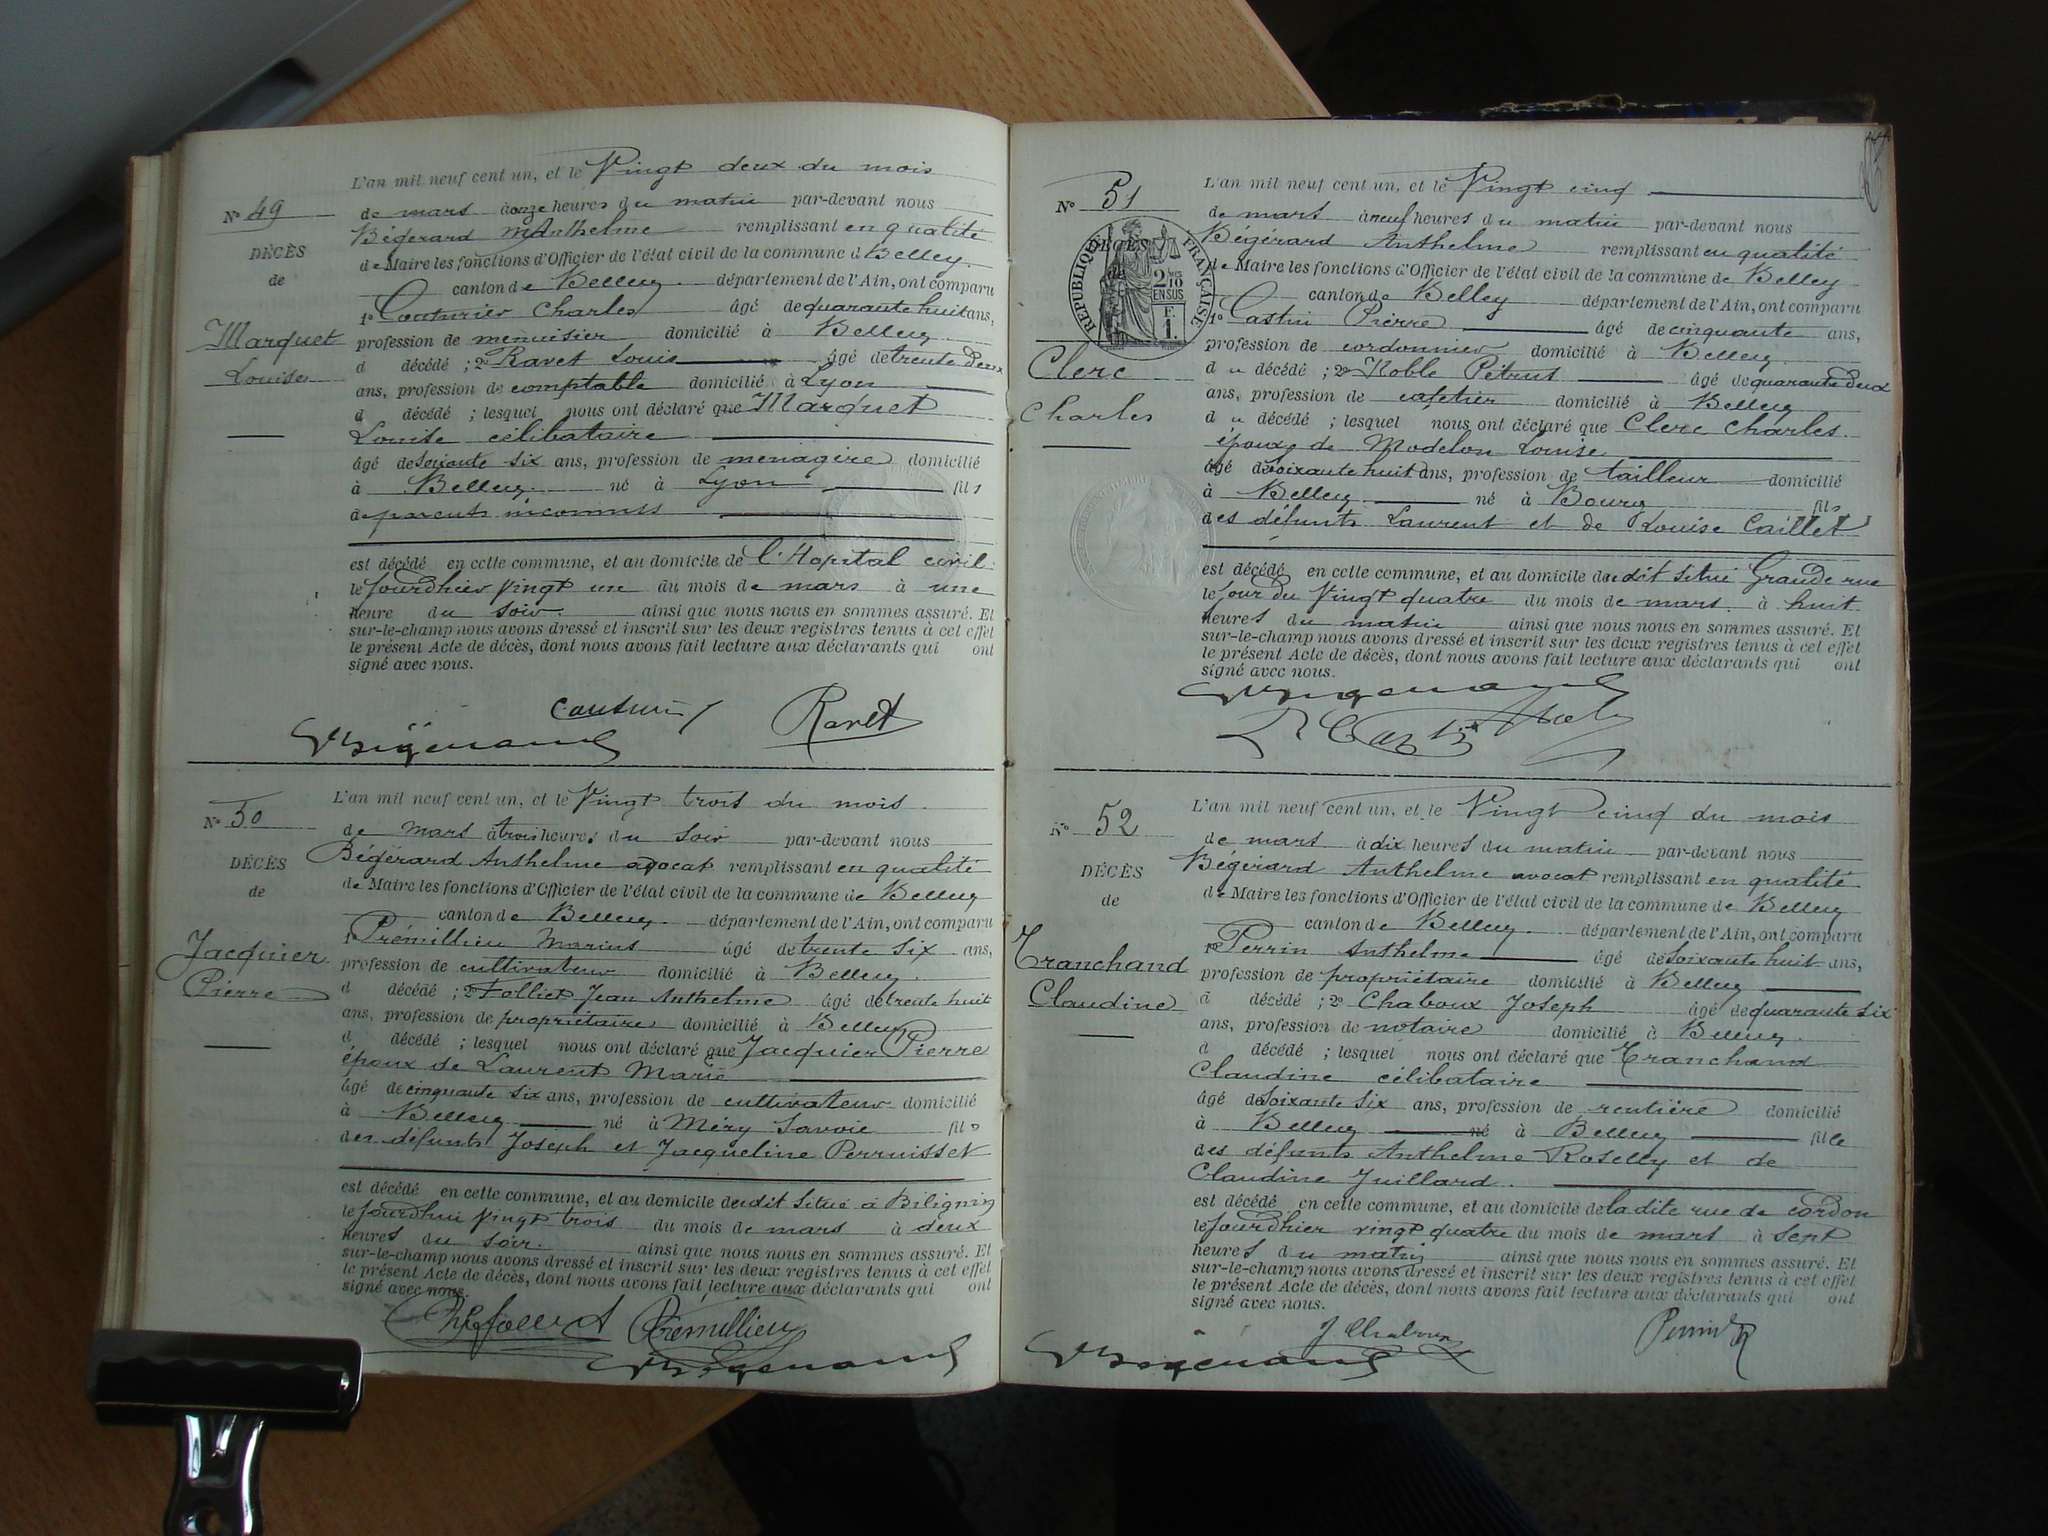 L'an mil neuf cent un, et le Vingt deux du mois
Nº 49
de mars à onze heures du matin par-devant nous
Bégérard Anthelme remplissant en qualité
DÉCÈS
de Maire les fonctions d'Officier de l'état civil de la commune d Belley
de
canton de Belley département de l'Ain, ont comparu
1º Couturier Charles âgé de quarante huit ans,
Marquet
profession de menuisier domicilié à Belley
Louise
d décédé ; 2º Ravet Louis âgé de trente deux
ans, profession de comptable domicilié à Lyon
d décédé ; lesquel nous ont déclaré que Marquet
Louise célibataire
âgé de soixante six ans, profession de ménagère domicilié
à Belley né à Lyon fils
de parents inconnus
est décédé en cette commune, et au domicile de l'Hopital civil
le jourdhier vingt un du mois de mars à une
heure du soir. ainsi que nous nous en sommes assuré. Et
sur-le-champ nous avons dressé et inscrit sur les deux registres tenus à cet effet
le présent Acte de décès, dont nous avons fait lecture aux déclarants qui ont
signé avec nous.
Ravet
L'an mil neuf cent un, et le Vingt trois du mois
Nº 50
de mars à trois heures du soir par-devant nous
Bégérard Anthelme avocat remplissant en qualité
DÉCÈS
de Maire les fonctions d'Officier de l'état civil de la commune de Belley
de
canton de Belley département de l'Ain, ont comparu
1º Prémillieu Marius âgé de trente six ans,
Jacquier
profession de cultivateur domicilié à Belley
Pierre
d décédé ; 2º Folliet Jean Anthelme âgé de trente huit
ans, profession de propriétaire domicilié à Belley
d décédé ; lesquel nous ont déclaré que Jacquier Pierre
époux de Laurent Marie
âgé de cinquante six ans, profession de cultivateur domicilié
à Belley né à Méry Savoie fils
des défunts Joseph et Jacqueline Perruisset
est décédé en cette commune, et au domicile dudit situé à Bilignin
le jourdhui vingt trois du mois de mars à deux
heures du soir. ainsi que nous nous en sommes assuré. Et
sur-le-champ nous avons dressé et inscrit sur les deux registres tenus à cet effet
le présent Acte de décès, dont nous avons fait lecture aux déclarants qui ont
signé avec nous.
Prémillieu
L'an mil neuf cent un, et le Vingt cinq
Nº 51
de mars à neuf heures du matin par-devant nous
Bégérard Anthelme remplissant en qualité
DÉCÈS
de
RÉPUBLIQUE FRANÇAISE
2/10 EN SUS
F. 1.
de Maire les fonctions d'Officier de l'état civil de la commune de Belley
canton de Belley département de l'Ain, ont comparu
1º Castin Pierre âgé de cinquante ans,
profession de cordonnier domicilié à Belley
Clerc
d u décédé ; 2º Koble Pétrus âgé de quarante deux
ans, profession de cafetier domicilié à Belley
Charles
d u décédé ; lesquel nous ont déclaré que Clerc Charles
époux de Modelon Louise
âgé de soixante huit ans, profession de tailleur domicilié
à Belley né à Bourg fils
des défunts Laurent et de Louise Caillet
est décédé en cette commune, et au domicile dudit situé Grande rue
le jour du Vingt quatre du mois de mars à huit
heures du matin ainsi que nous nous en sommes assuré. Et
sur-le-champ nous avons dressé et inscrit sur les deux registres tenus à cet effet
le présent Acte de décès, dont nous avons fait lecture aux déclarants qui ont
signé avec nous.
L'an mil neuf cent un, et le Vingt cinq du mois
Nº 52
de mars à dix heures du matin par-devant nous
Bégérard Anthelme avocat remplissant en qualité
DÉCÈS
de Maire les fonctions d'Officier de l'état civil de la commune de Belley
de
canton de Belley département de l'Ain, ont comparu
1º Perrin Anthelme âgé de soixante huit ans,
Tranchand
profession de propriétaire domicilié à Belley
Claudine
d décédé ; 2º Chaboux Joseph âgé de quarante six
ans, profession de notaire domicilié à Belley
d décédé ; lesquel nous ont déclaré que Tranchand
Claudine célibataire
âgé de soixante six ans, profession de rentière domicilié
à Belley né à Belley fille
des défunts Anthelme Roselly et de
Claudine Juillard.
est décédé en cette commune, et au domicile de ladite rue de cordon
le jourdhier vingt quatre du mois de mars à sept
heures du matin ainsi que nous nous en sommes assuré. Et
sur-le-champ nous avons dressé et inscrit sur les deux registres tenus à cet effet
le présent Acte de décès, dont nous avons fait lecture aux déclarants qui ont
signé avec nous.
J Chaboux
Perrin